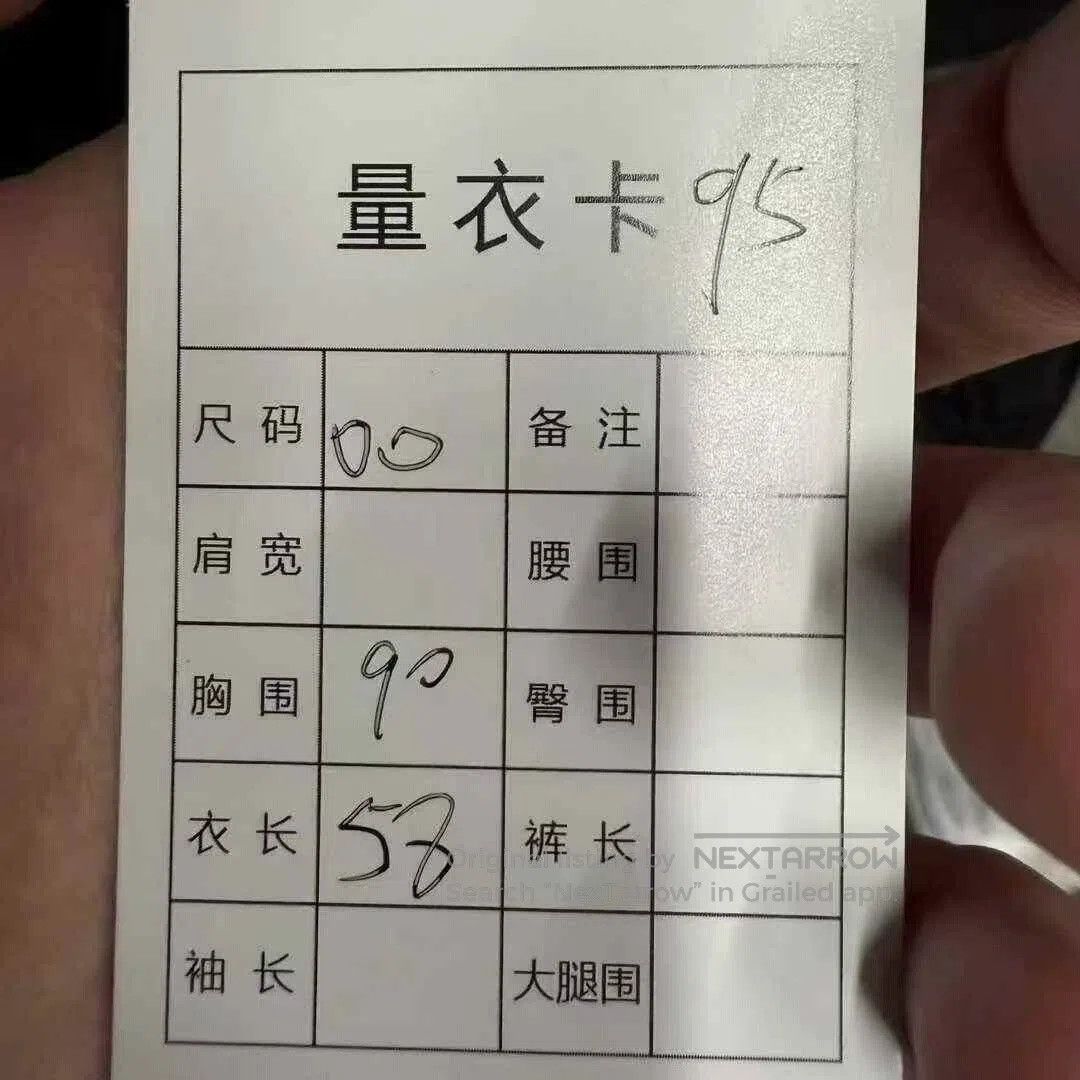 量衣卡 95
尺码 00 备注
肩宽 腰围
胸围 90 臀围
衣长 58 裤长
Original listing by NEXTARROW
Search "NexTarrow" in Grailed app
袖长 大腿围